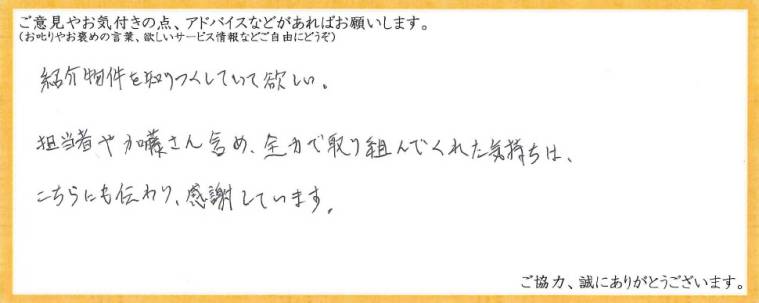 ご意見やお気付きの点、アドバイスなどがあればお願いします。
(お叱りやお褒めの言葉、欲しいサービス情報などご自由にどうぞ)
紹介物件を知りつくしていて欲しい。
担当者や加藤さん含め、全力で取り組んでくれた気持ちは、
こちらにも伝わり、感謝しています。
ご協力、誠にありがとうございます。